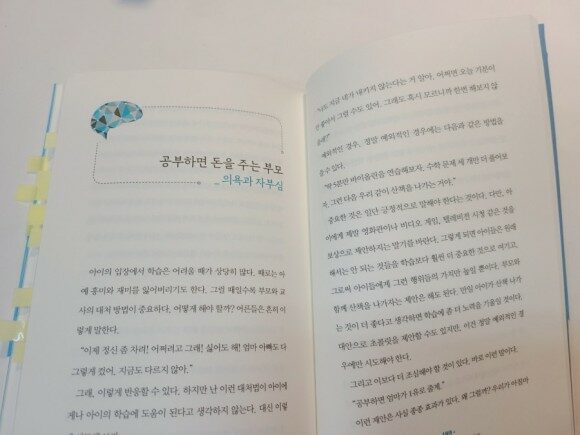 공부하면 돈을 주는 부모
_ 의욕과 자부심
아이의 입장에서 학습은 어려울 때가 상당히 많다. 때로는 아
예 흥미와 재미를 잃어버리기도 한다. 그럴 때일수록 부모와 교
사의 대처 방법이 중요하다. 어떻게 해야 할까? 어른들은 흔히 이
렇게 말한다.
"이제 정신 좀 차려! 어쩌려고 그래! 싫어도 해! 엄마 아빠도 다
그렇게 컸어. 지금도 다르지 않아."
그래, 이렇게 반응할 수 있다. 하지만 난 이런 대처법이 아이에
게나 아이의 학습에 도움이 된다고 생각하지 않는다. 대신 이렇
"너도 지금 네가 내키지 않는다는 거 알아. 어쩌면 오늘 기분이
안 좋아서 그럴 수도 있어. 그래도 혹시 모르니까 한번 해보지 않
을래?"
예외적인 경우, 정말 예외적인 경우에는 다음과 같은 방법을
쓸 수 있다.
"딱 5분만 바이올린을 연습해보자. 수학 문제 세 개만 더 풀어보
자. 그런 다음 우리 같이 산책을 나가는 거야."
중요한 것은 일단 긍정적으로 말해야 한다는 것이다. 다만, 아
이에게 제발 영화관이나 비디오 게임, 텔레비전 시청 같은 것을
보상으로 제안하지는 말기를 바란다. 그렇게 되면 아이들은 원래
해서는 안 되는 것들을 학습보다 훨씬 더 중요한 것으로 여기고,
그로써 아이들에게 그런 행위들의 가치만 높일 뿐이다. 부모와
함께 산책을 나가자는 제안은 해도 된다. 만일 아이가 산책 나가
는 것이 더 좋다고 생각하면 학습에 좀 더 노력을 기울일 것이다.
대안으로 초콜릿을 제안할 수도 있지만, 이건 정말 예외적인 경
우에만 시도해야 한다.
그리고 이보다 더 조심해야 할 것이 있다. 바로 이런 말이다.
"공부하면 엄마가 1유로 줄게."
이런 제안은 사실 종종 효과가 있다. 왜 그럴까? 우리가 아침마